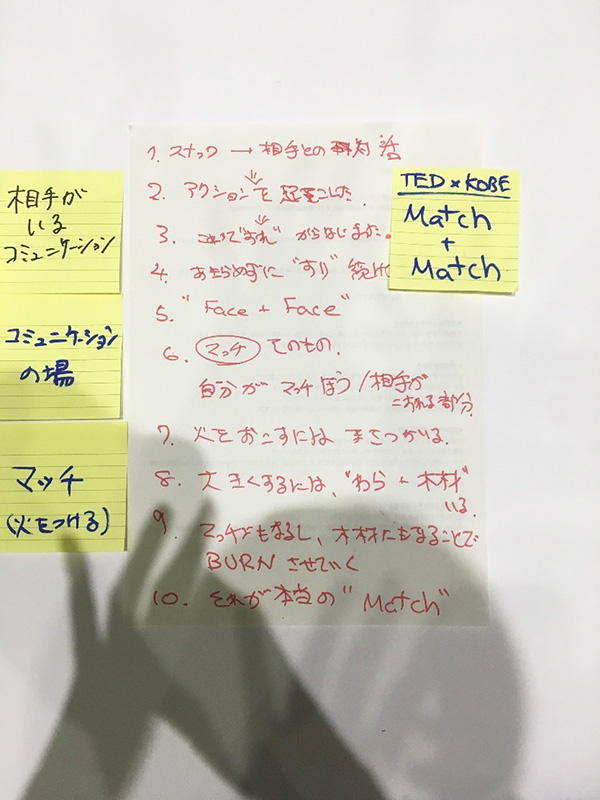 相手が
いる
コミュニケーション
コミュニケーション
の場
マッチ
(火をつける)
TED×KOBE
Match
+
Match
1. スナック → 相手との 対 活
2. アクションを 起こした.
3. これで"すれ" からはじまった.
4. あきらめずに "すり" 続け
5. "Face + Face"
6. マッチ そのもの.
自分が マッチぼう/相手が
こすれる部分
7. 火をおこすには まさつがいる.
8. 大きくするには、"わら + 木材"
いる.
9. マッチにもなるし、木材にもなることで
BURN させていく
10. それが本当の "Match"